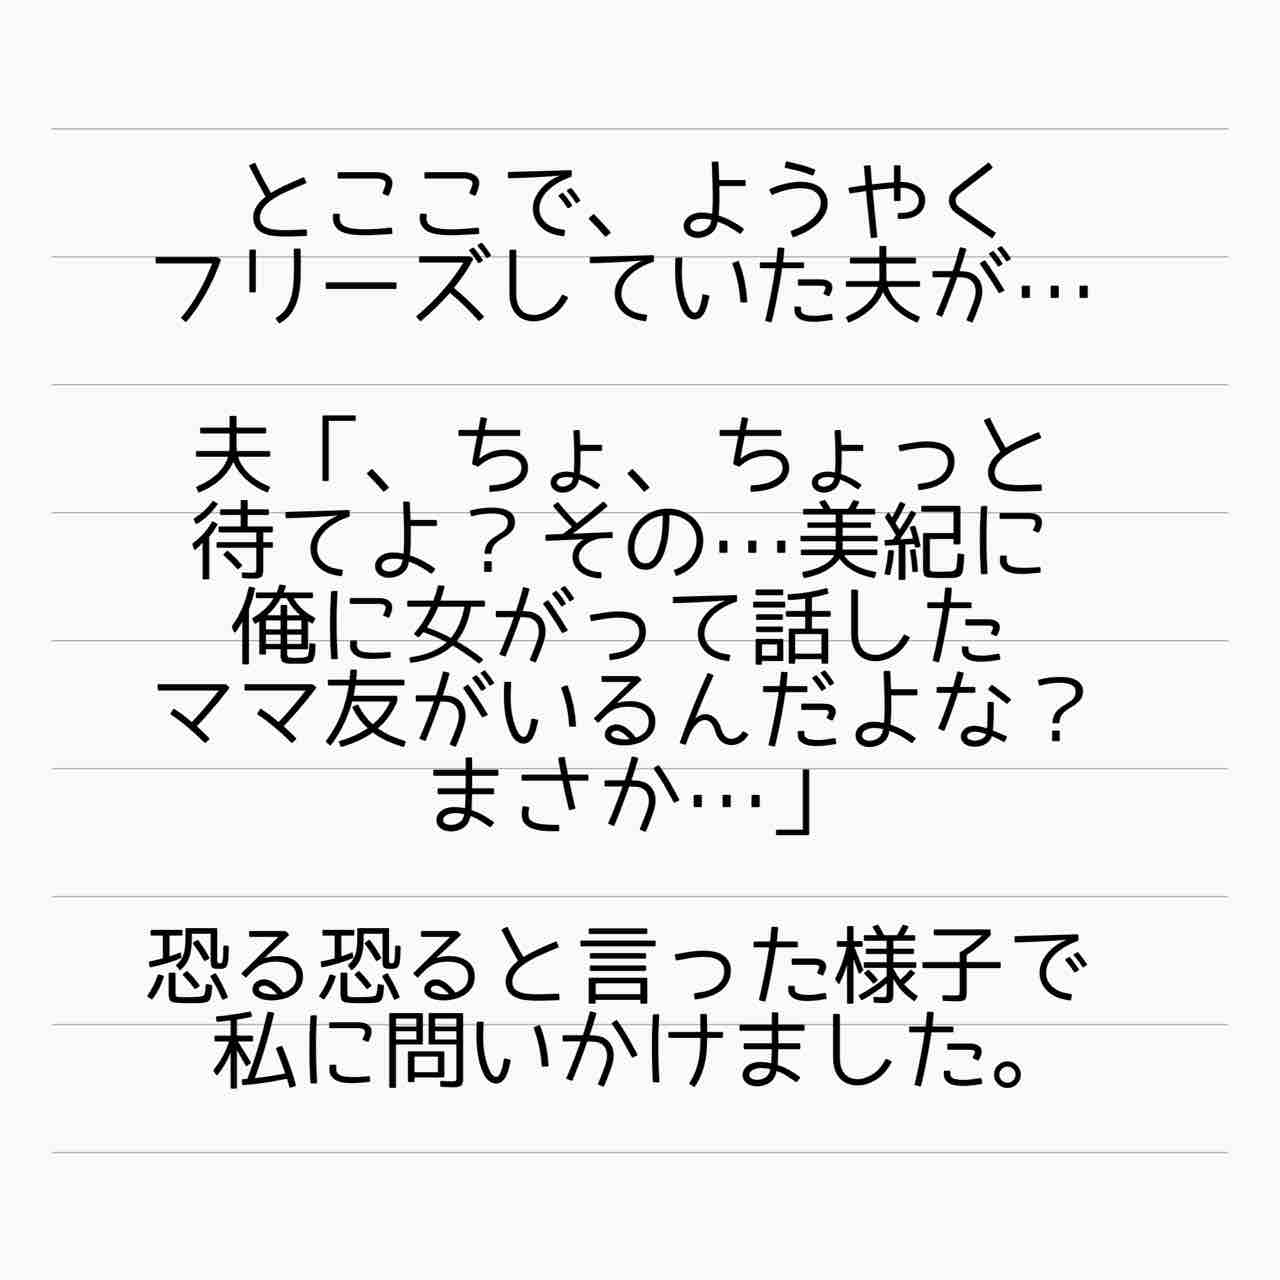 とここで、ようやく
フリーズしていた夫が…
夫「、ちょ、ちょっと
待てよ？その…美紀に
俺に女がって話した
ママ友がいるんだよな？
まさか…」
恐る恐ると言った様子で
私に問いかけました。